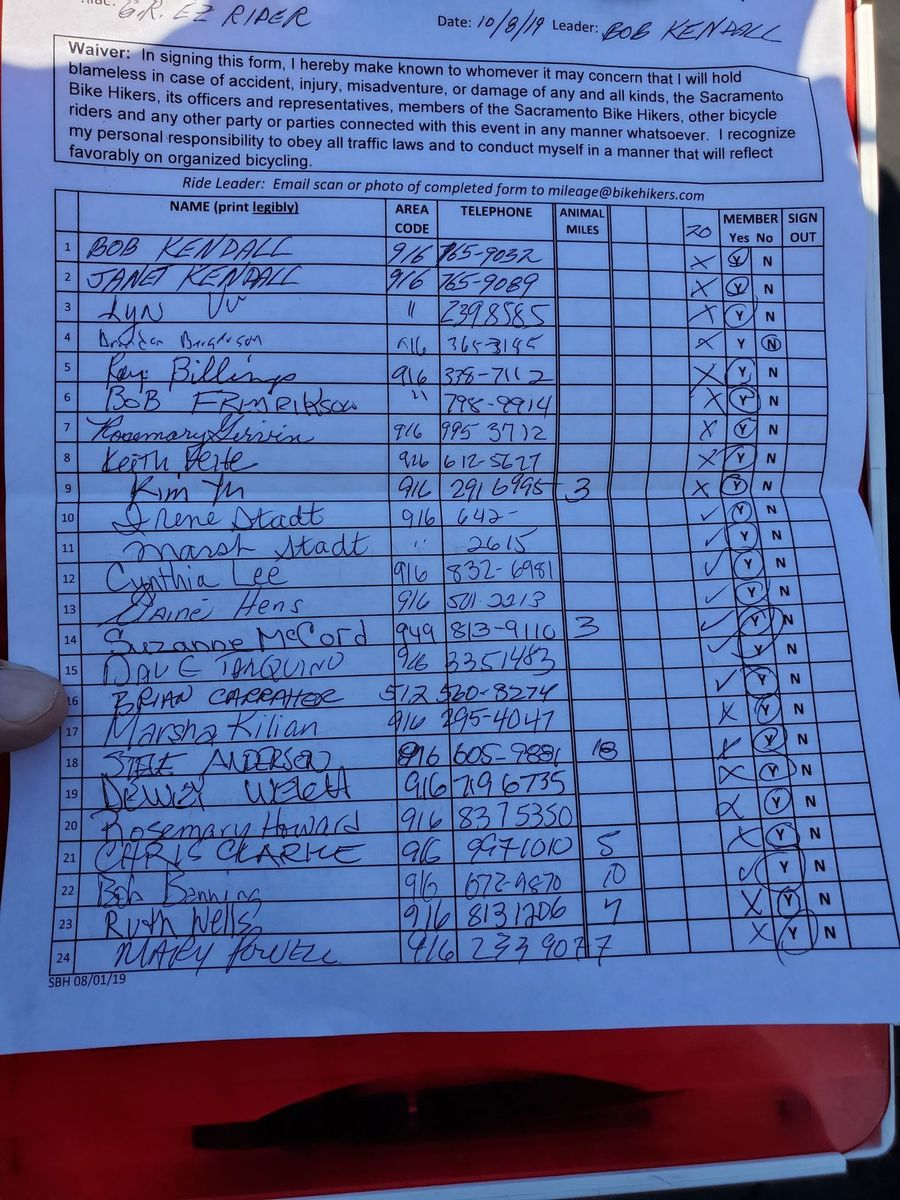 G.R. EZ RIDER Date: 10/8/19 Leader: BOB KENDALL
Waiver: In signing this form, I hereby make known to whomever it may concern that I will hold
blameless in case of accident, injury, misadventure, or damage of any and all kinds, the Sacramento
Bike Hikers, its officers and representatives, members of the Sacramento Bike Hikers, other bicycle
riders and any other party or parties connected with this event in any manner whatsoever. I recognize
my personal responsibility to obey all traffic laws and to conduct myself in a manner that will reflect
favorably on organized bicycling.
Ride Leader: Email scan or photo of completed form to mileage@bikehikers.com
NAME (print legibly) AREA CODE TELEPHONE ANIMAL MILES 20 MEMBER Yes No SIGN OUT
1 BOB KENDALL 916 765-9032 X Y N
2 JANET KENDALL 916 765-9089 X Y N
3 Lyn 11 2398585 X Y N
4 916 X Y N
5 Ray Billings 916 378-7112 X Y N
6 BOB 11 798-9914 X Y N
7 Rosemary 916 995 3712 X Y N
8 Keith 916 612-5627 X Y N
9 Kim 916 291 6995 3 X Y N
10 Irene Stadt 916 642- ✓ Y N
11 Marsh Stadt " 2615 ✓ Y N
12 Cynthia Lee 916 832-6981 ✓ Y N
13 Hens 916 ✓ Y N
14 Suzanne McCord 949 813-9110 3 ✓ Y N
15 DAVE TARQUINO 916 3351483 ✓ Y N
16 BRIAN CARRAHER 512 560-8274 ✓ Y N
17 Marsha Kilian 916 295-4047 X Y N
18 STEVE ANDERSEN 916 605-9881 18 X Y N
19 DEWEY 916 719 6735 X Y N
20 Rosemary Howard 916 8375350 X Y N
21 CHRIS CLARKE 916 997 1010 5 X Y N
22 Bob Benning 916 672-9870 10 ✓ Y N
23 Ruth Wells 916 8131206 7 X Y N
24 MARY POWELL 916 7 X Y N
SBH 08/01/19